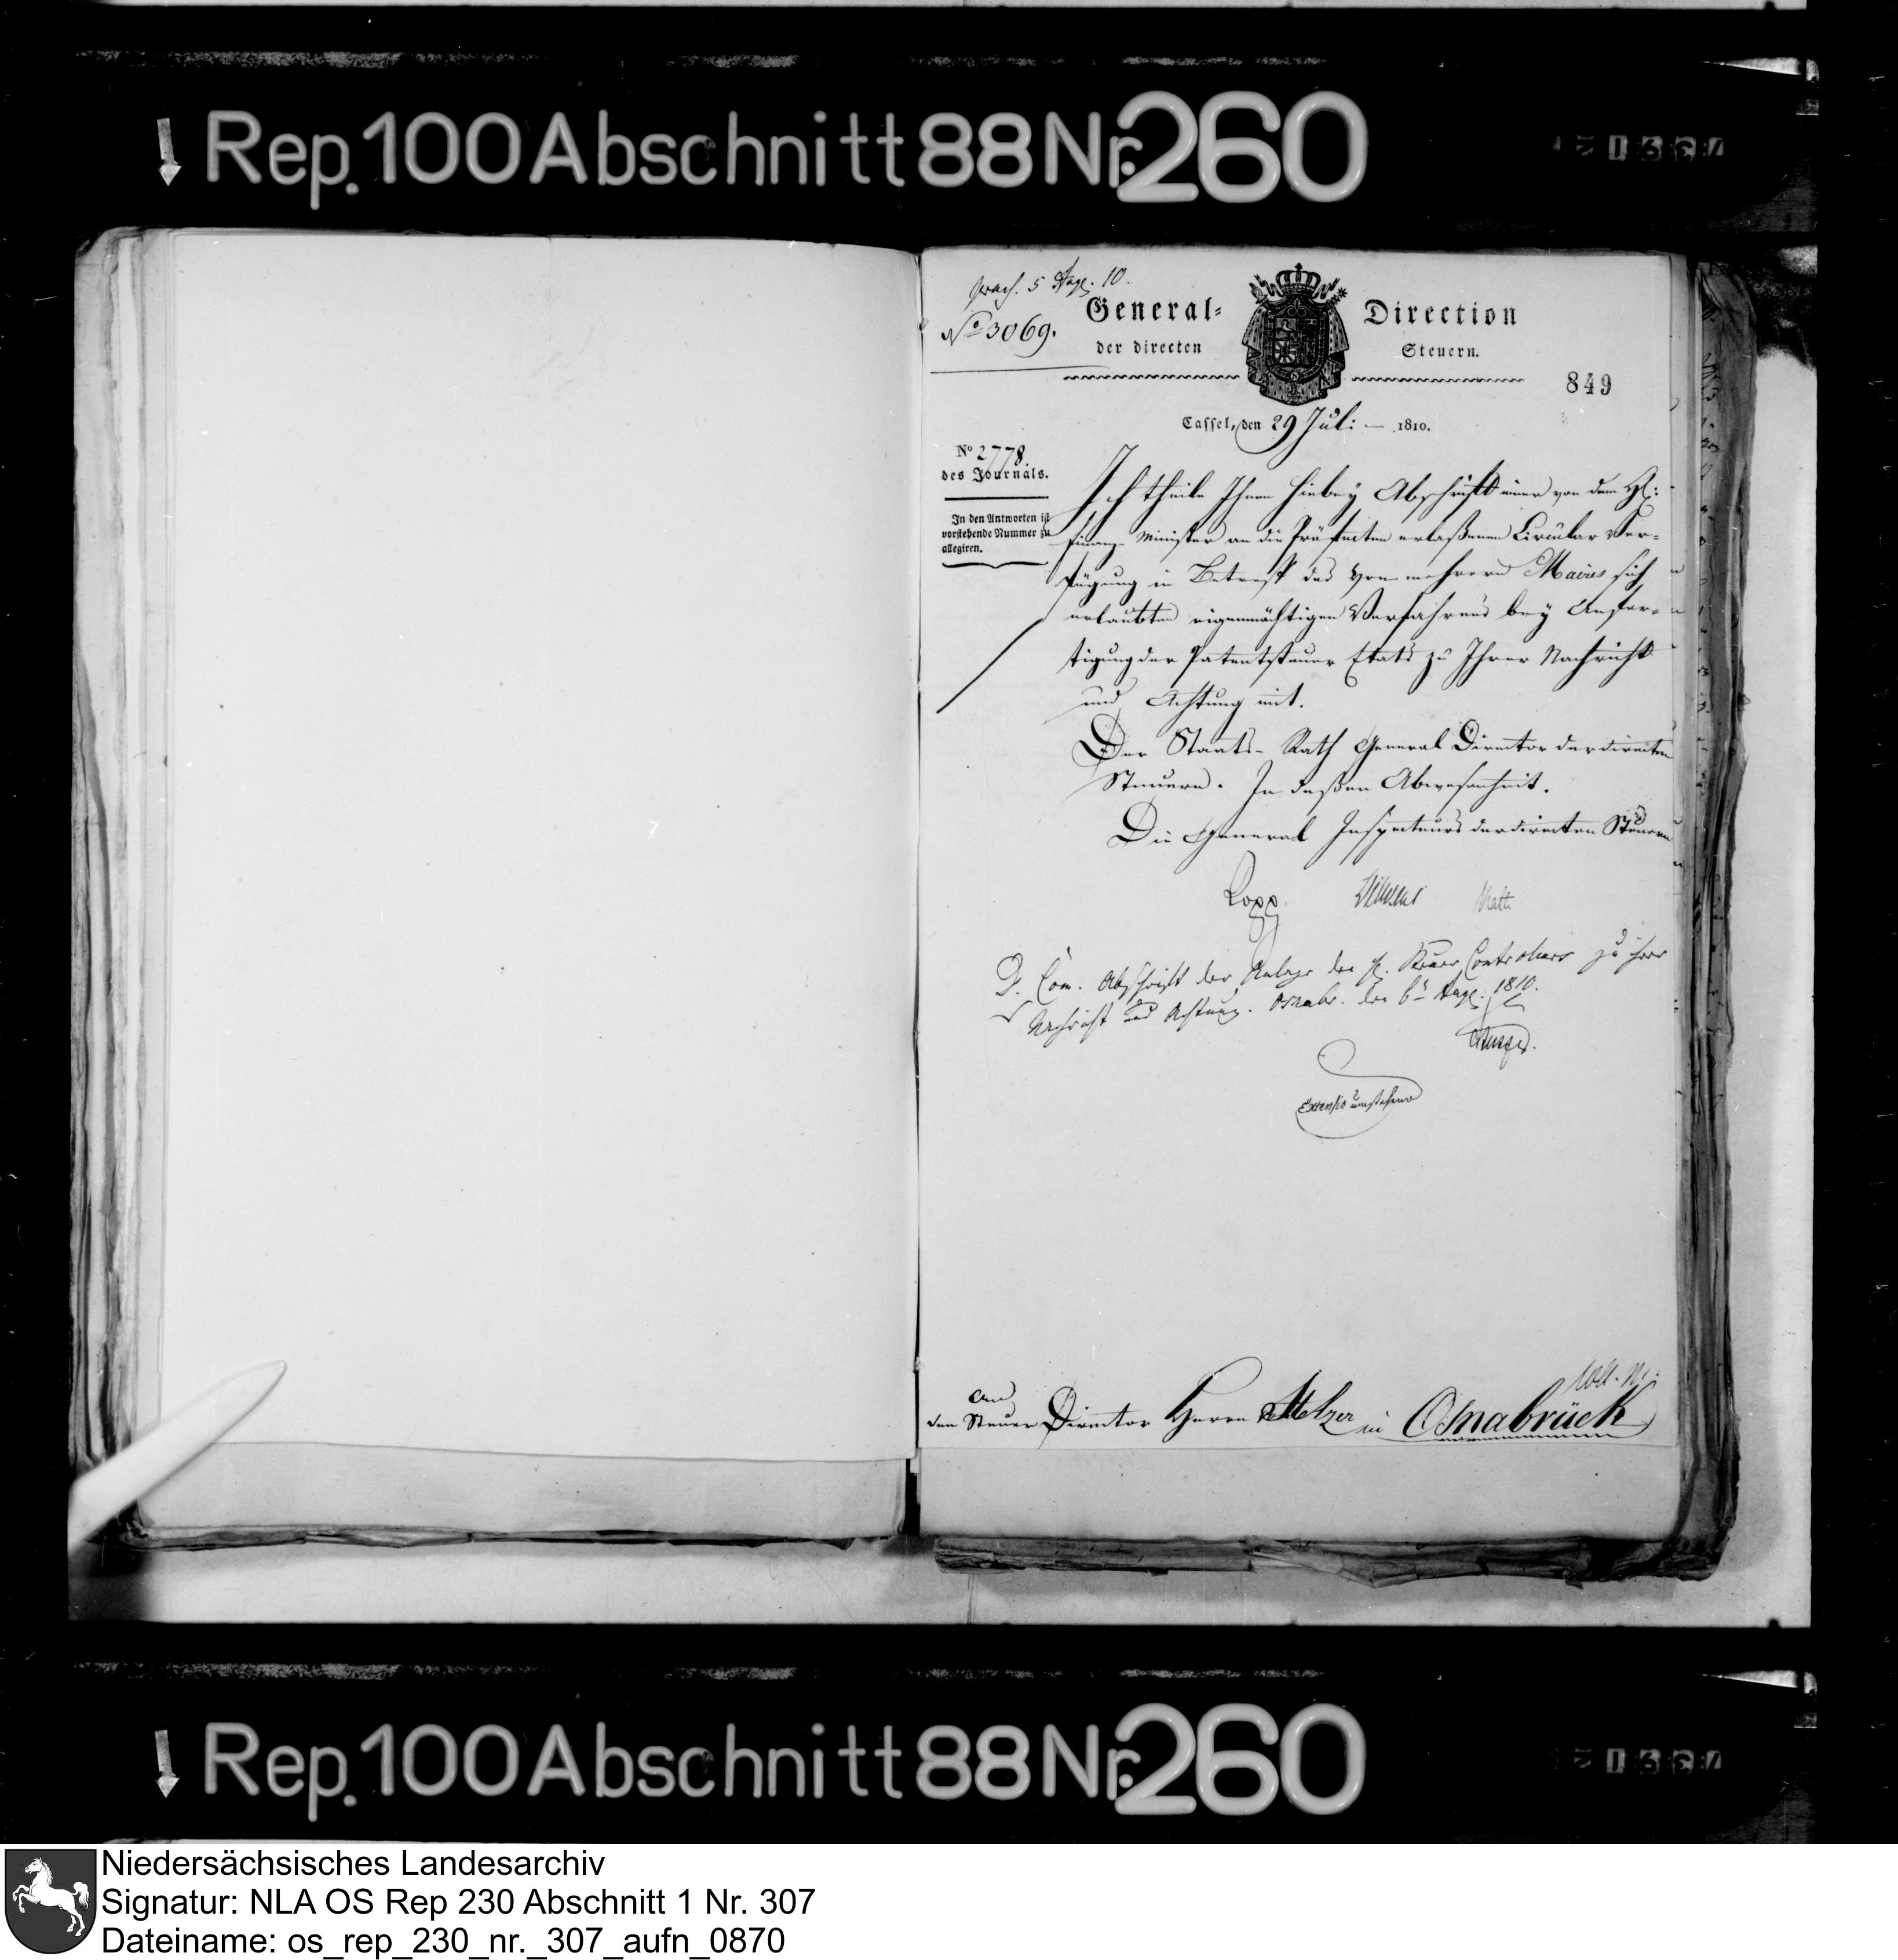 Rep. 100 Abschnitt 88 Nr. 260
praes. 5 Aug. 10.
No 3069.
General-Direction
der directen Steuern.
849
Cassel, den 29 Juli — 1810.
No 2778
des Journals.
In den Antworten ist
vorstehende Nummer zu
allegiren.
Ich theile Ihnen hiebey Abschrift einer von dem H:
Finanz-Minister an die Präfecten erlaßenen Circular Ver-
fügung in Betreff des von mehrern Maires sich
erlaubten eigenmächtigen Verfahrens bey Anfer-
tigung der Patentsteuer Etats zu Ihrer Nachricht
und Achtung mit.
Der Staats-Rath General Director der directen
Steuern. In deßen Abwesenheit.
Die General Inspecteurs der directen Steuern
Abschrift der Anlage den H. Steuer Controleurs zu ihrer
Nachricht und Achtung. Osnabr. den 6t Aug. 1810.
Extensio umstehend
An
den Steuer Director Herrn Metzer in Osnabrück
Rep. 100 Abschnitt 88 Nr. 260
Niedersächsisches Landesarchiv
Signatur: NLA OS Rep 230 Abschnitt 1 Nr. 307
Dateiname: os_rep_230_nr._307_aufn_0870